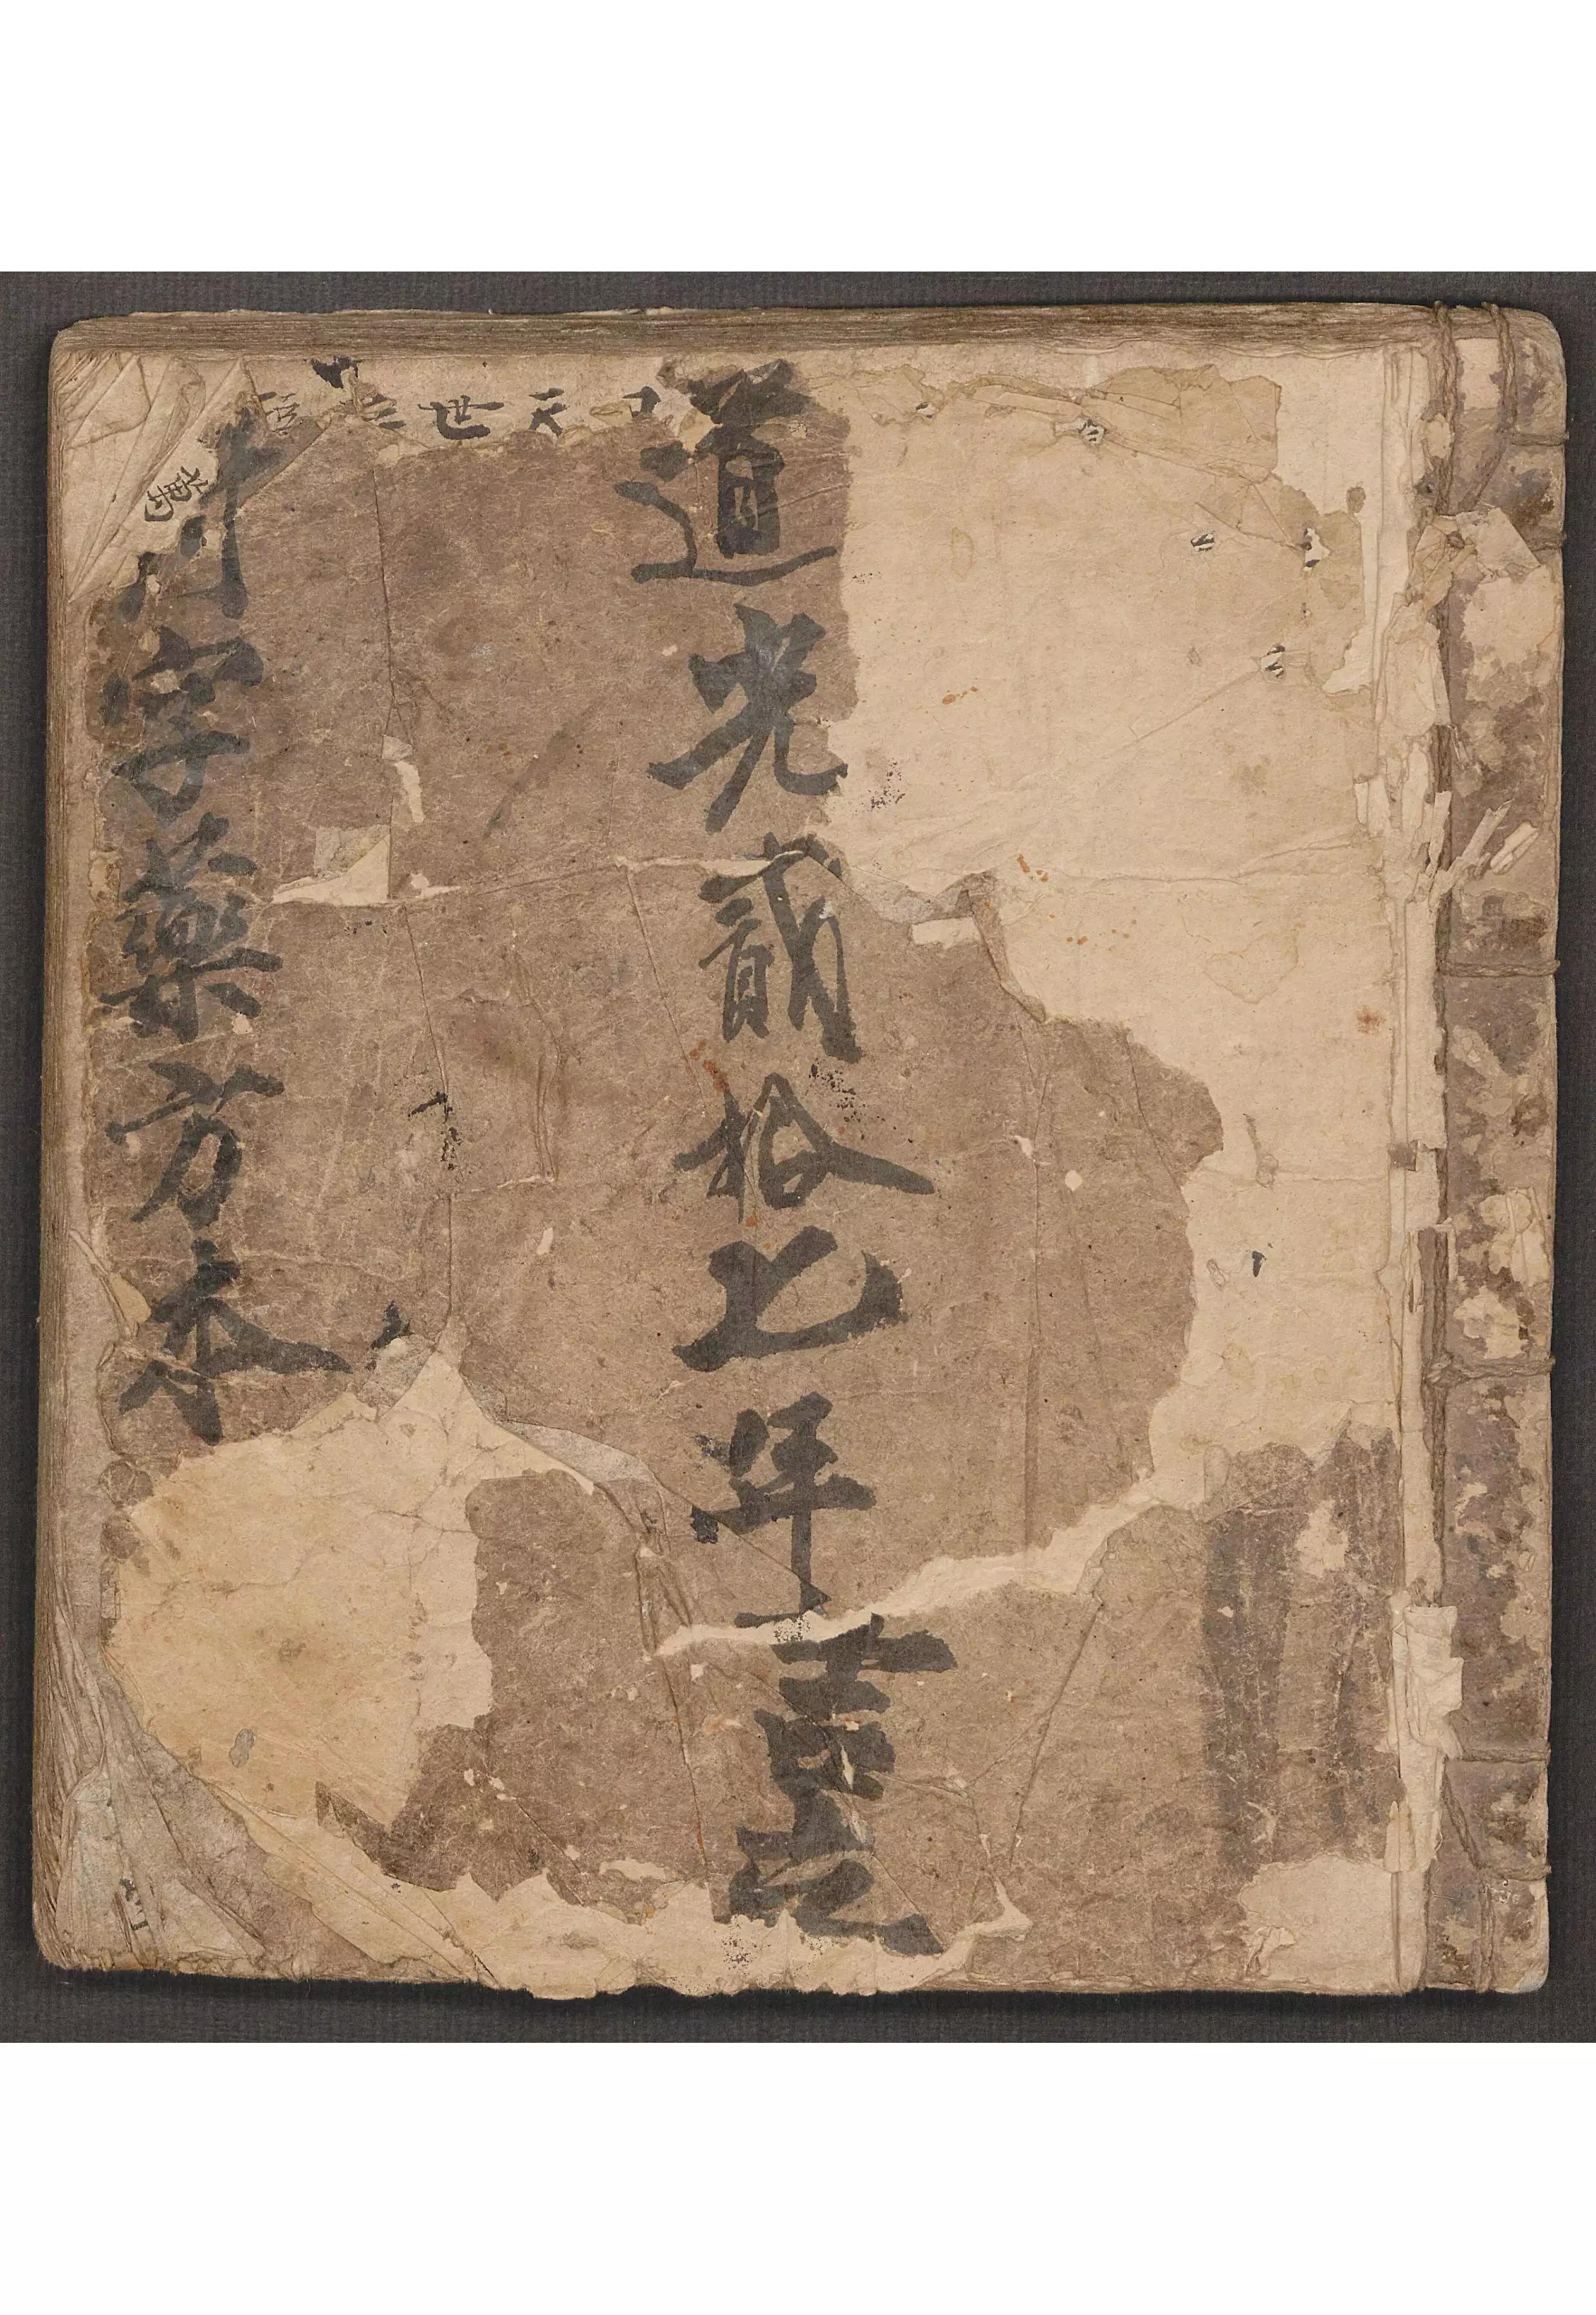 道光貳拾七年吉立
字藥方本
天世
萬